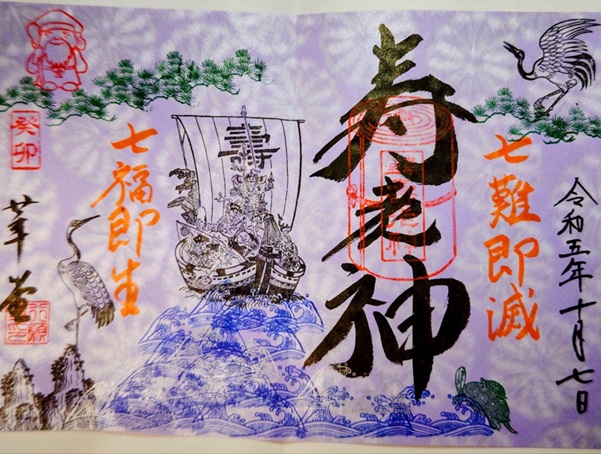 令和五年十月七日
七難即滅
寿老神
壽
七福即生
癸卯
革堂
行願